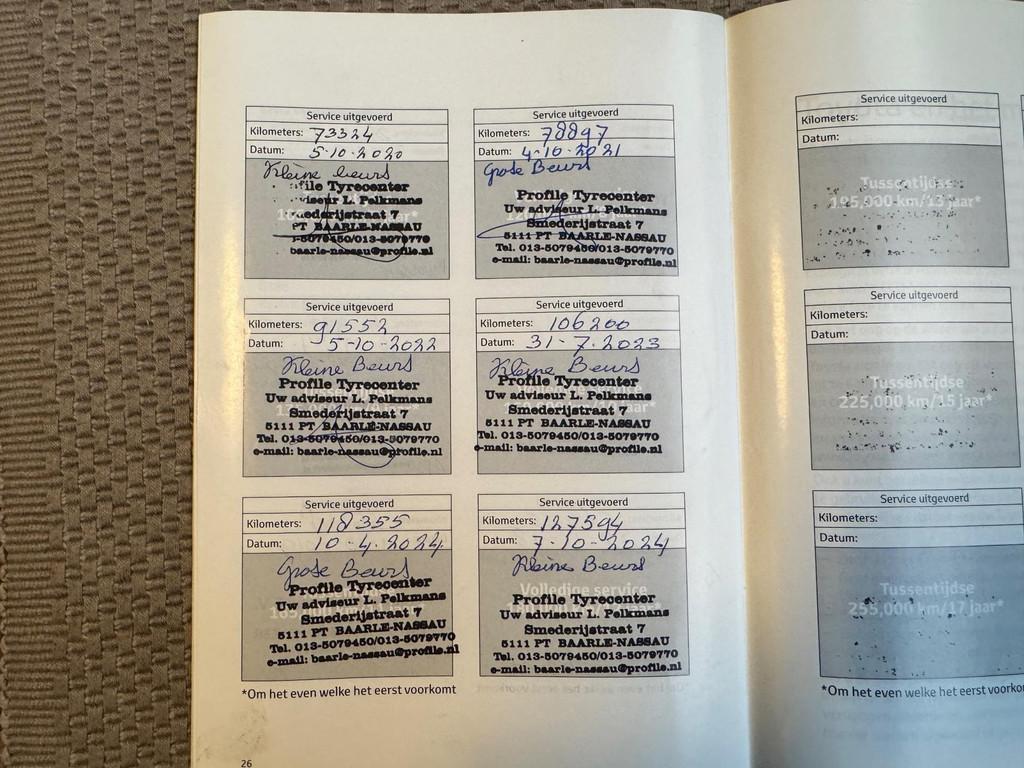 Service uitgevoerd
Kilometers: 73324
Datum: 5-10-2020
Kleine beurs
file Tyrecenter
iseur L. Pelkmans
mederijstraat 7
PT BAARLE-NASSAU
-5079450/013-5079770
baarle-nassau@profile.nl
Service uitgevoerd
Kilometers: 78897
Datum: 4-10-2021
Grote Beurs
Profile Tyrecenter
Uw adviseur L. Pelkmans
Smederijstraat 7
5111 PT BAARLE-NASSAU
Tel. 013-5079450/013-5079770
e-mail: baarle-nassau@profile.nl
Service uitgevoerd
Kilometers: 91552
Datum: 5-10-2022
Kleine Beurs
Profile Tyrecenter
Uw adviseur L. Pelkmans
Smederijstraat 7
5111 PT BAARLE-NASSAU
Tel. 013-5079450/013-5079770
e-mail: baarle-nassau@profile.nl
Service uitgevoerd
Kilometers: 106200
Datum: 31-7-2023
Kleine Beurs
Profile Tyrecenter
Uw adviseur L. Pelkmans
Smederijstraat 7
5111 PT BAARLE-NASSAU
Tel. 013-5079450/013-5079770
e-mail: baarle-nassau@profile.nl
Service uitgevoerd
Kilometers: 118355
Datum: 10-4-2024
Grote Beurs
Profile Tyrecenter
Uw adviseur L. Pelkmans
Smederijstraat 7
5111 PT BAARLE-NASSAU
Tel. 013-5079450/013-5079770
e-mail: baarle-nassau@profile.nl
Service uitgevoerd
Kilometers: 127594
Datum: 7-10-2024
Kleine Beurs
Volledige service
Profile Tyrecenter
Uw adviseur L. Pelkmans
Smederijstraat 7
5111 PT BAARLE-NASSAU
Tel. 013-5079450/013-5079770
e-mail: baarle-nassau@profile.nl
*Om het even welke het eerst voorkomt
26
Service uitgevoerd
Kilometers:
Datum:
Tussentijdse
195,000 km/13 jaar*
Service uitgevoerd
Kilometers:
Datum:
Tussentijdse
225,000 km/15 jaar*
Service uitgevoerd
Kilometers:
Datum:
Tussentijdse
255,000 km/17 jaar*
*Om het even welke het eerst voorko